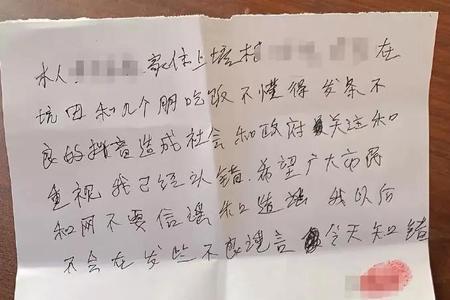 本人 家住上塔村 在
坑田和几个朋吃饭不懂得发条不
良的抖音造成社会和政府关注和
重视我已经认错.希望广大市民
和网不要信谣和造谣 我以后
不会在发些不良谣言 今天知口错